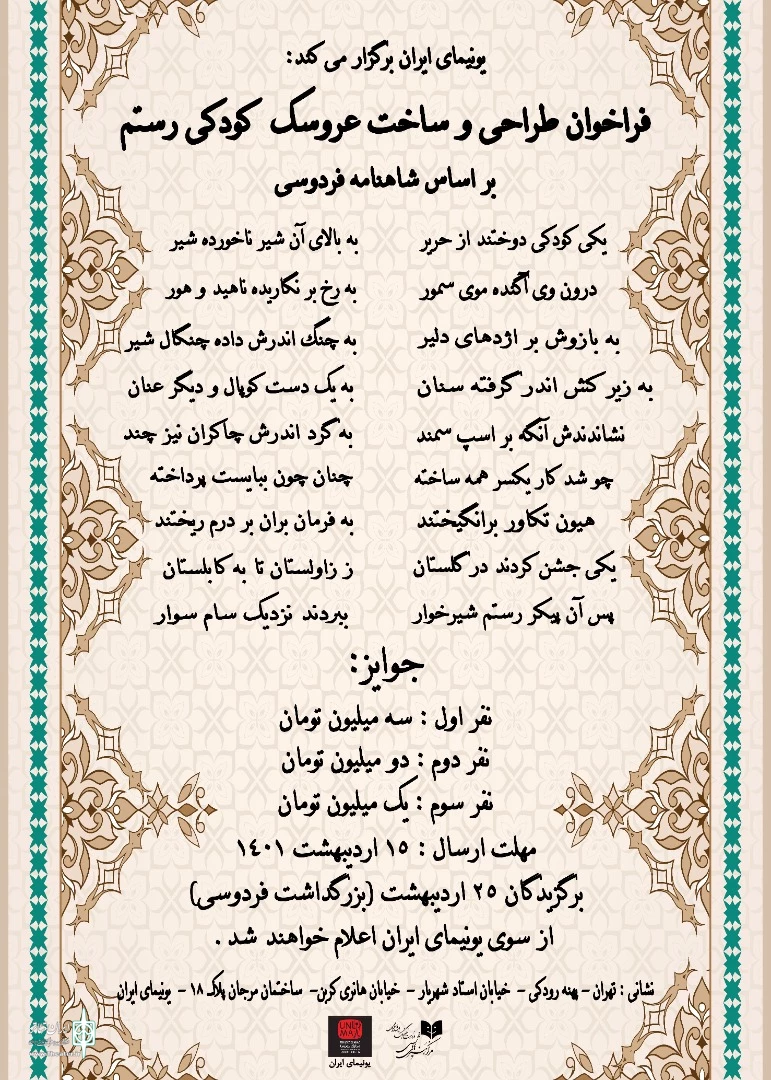 یونیمای ایران برگزار می کند:
فراخوان طراحی و ساخت عروسک کودکی رستم
بر اساس شاهنامه فردوسی
یکی کودکی دوختند از حریر به بالای آن شیر ناخورده شیر
درون وی آگنده موی سمور به رخ بر نگاریده ناهید و هور
به بازوش بر اژدهای دلیر به چنگ اندرش داده چنگال شیر
به زیر کش اندر گرفته سنان به یک دست کوپال و دیگر عنان
نشاندندش آنگه بر اسپ سمند به گرد اندرش چاکران نیز چند
چو شد کار یکسر همه ساخته چنان چون ببایست پرداخته
هیون تکاور برانگیختند به فرمان بران بر درم ریختند
یکی جشن کردند در گلستان ز زاولستان تا به کابلستان
پس آن پیکر رستم شیرخوار ببردند نزدیک سام سوار
جوایز:
نفر اول : سه میلیون تومان
نفر دوم : دو میلیون تومان
نفر سوم : یک میلیون تومان
مهلت ارسال : ۱۵ اردیبهشت ۱۴۰۱
برگزیدگان ۲۵ اردیبهشت (بزرگداشت فردوسی)
از سوی یونیمای ایران اعلام خواهند شد .
نشانی : تهران – پهنه رودکی – خیابان استاد شهریار – خیابان هانری کربن– ساختمان مرجان پلاک ۱۸ – یونیمای ایران
UNI
MA
یونیمای ایران